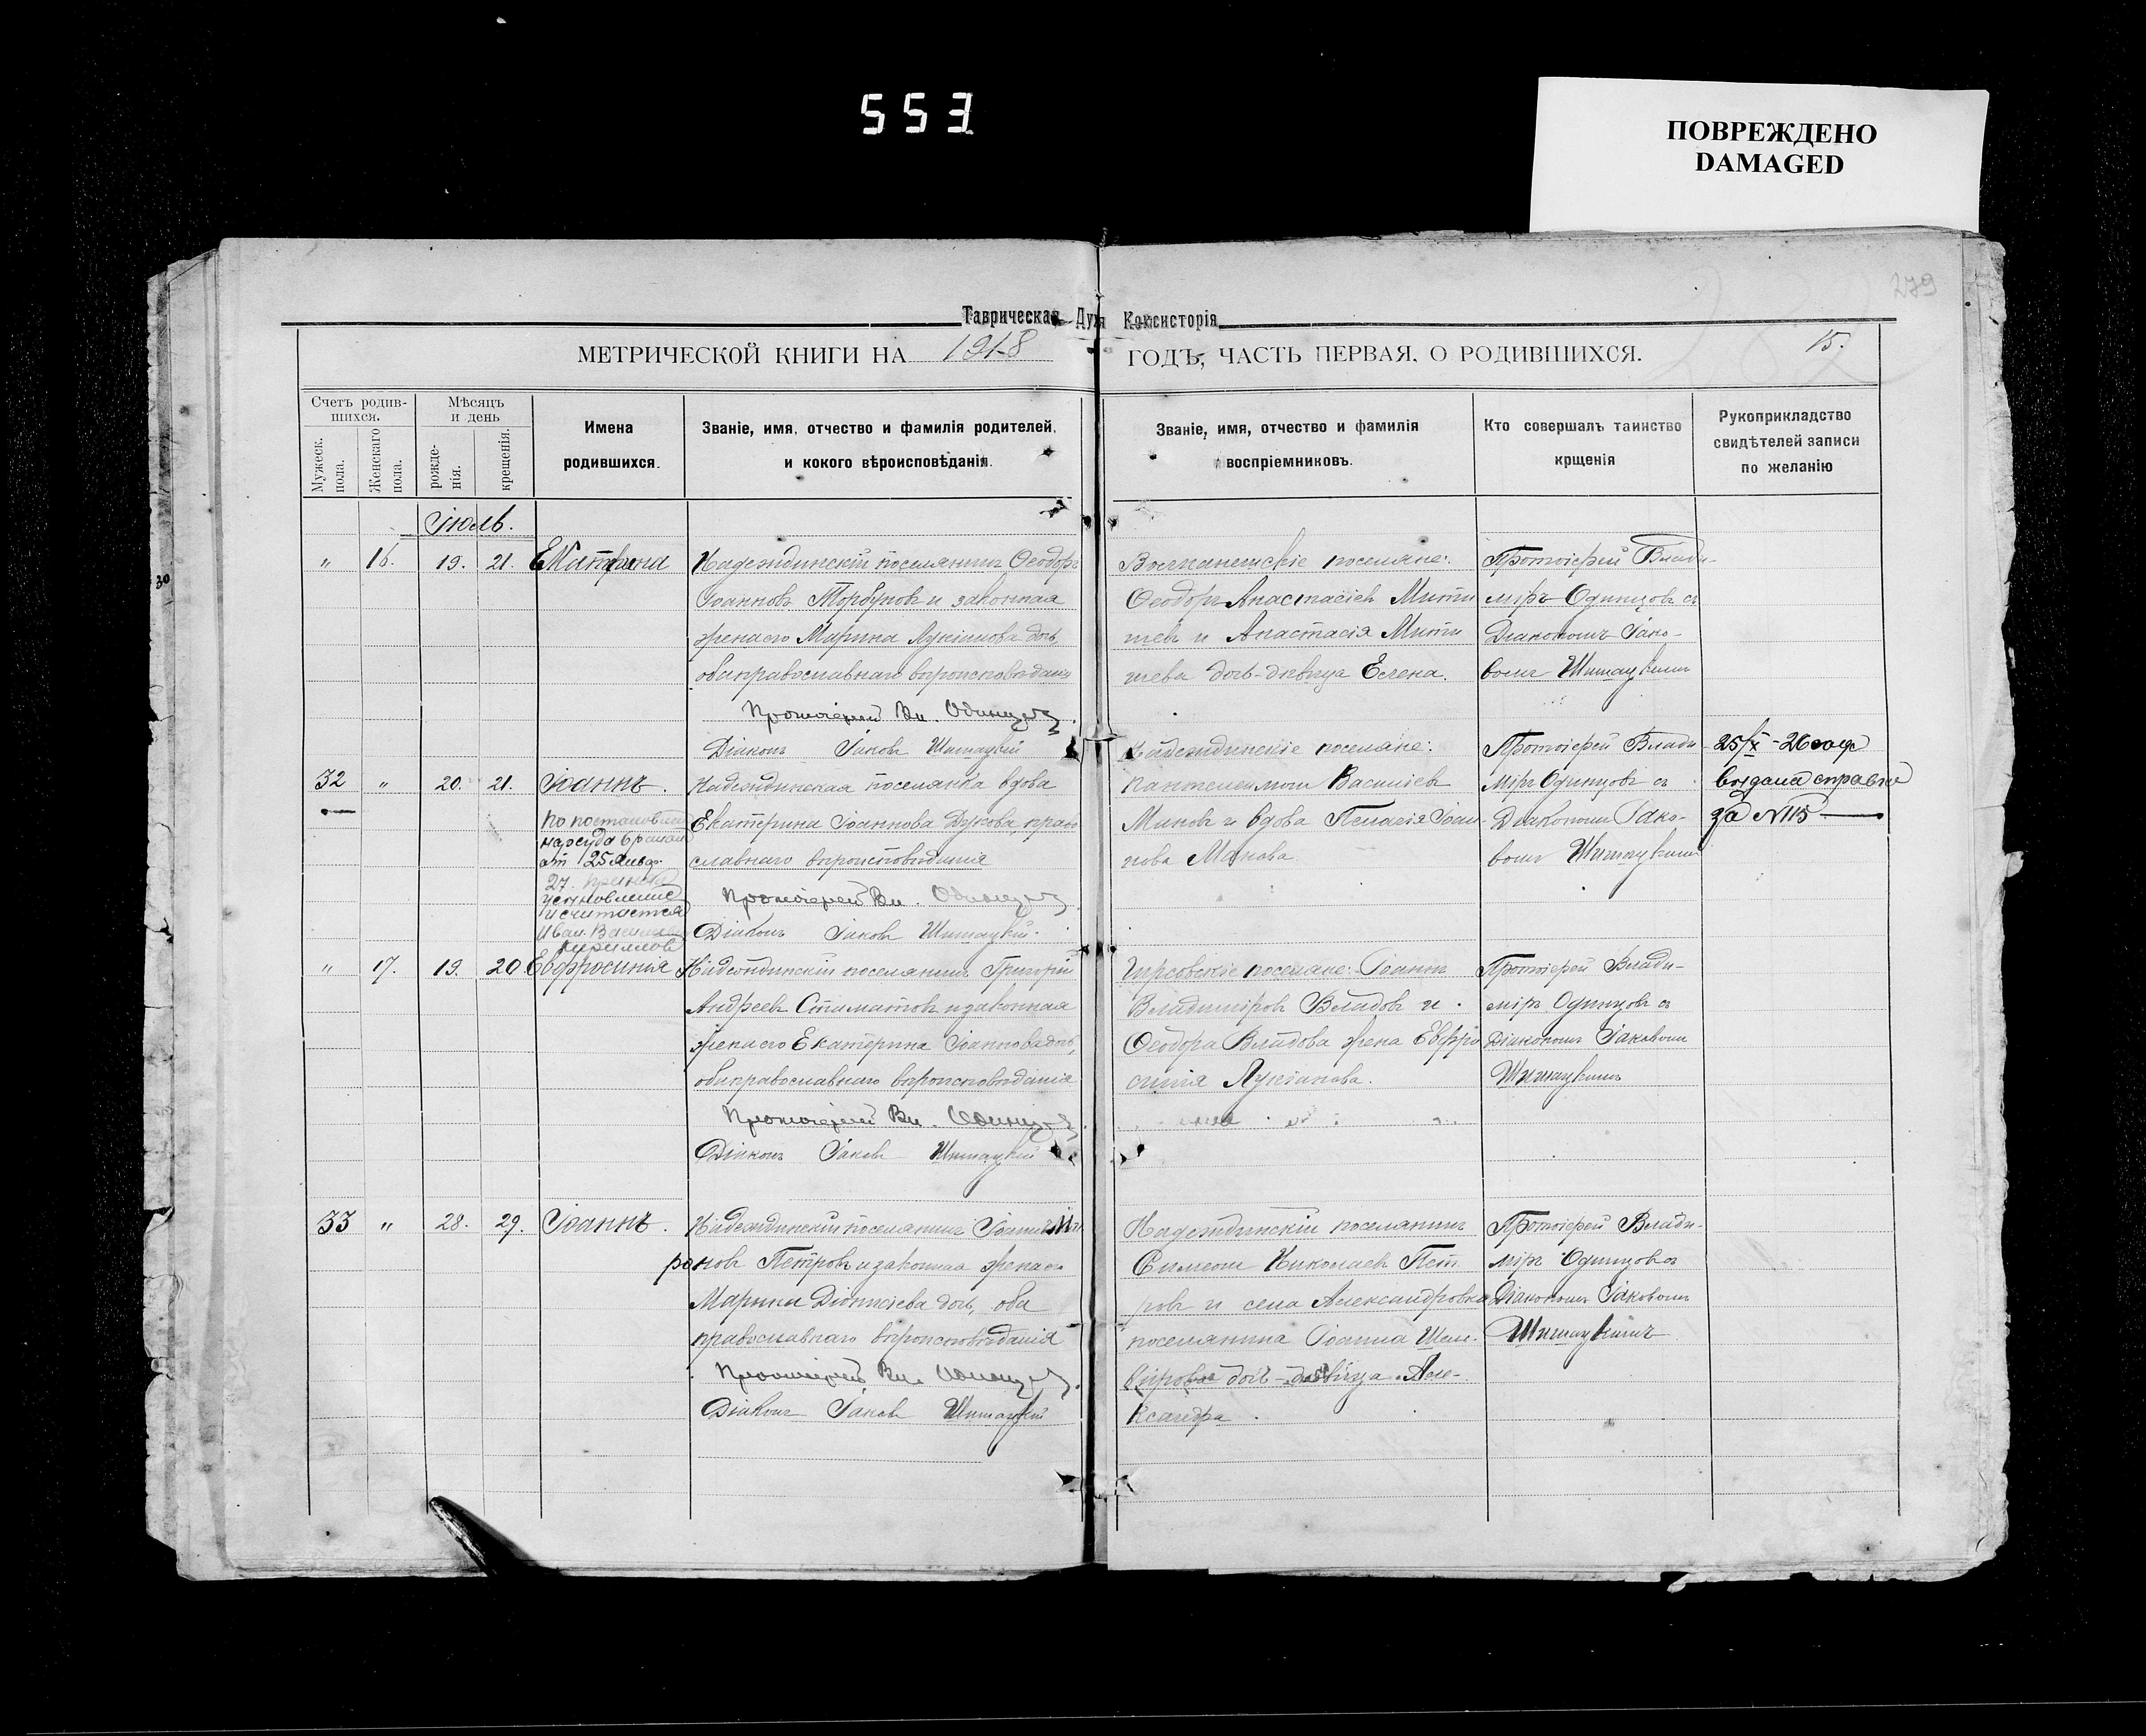 553
ПОВРЕЖДЕНО
DAMAGED
279
Таврическая Дух Консисторія
МЕТРИЧЕСКОЙ КНИГИ НА 1918 ГОДЪ, ЧАСТЬ ПЕРВАЯ, О РОДИВШИХСЯ.
15.
Счетъ родив-
шихся.
Мужеск. пола.
Женскаго пола.
Мѣсяцъ
и день
рожде-
нія.
крещенія.
Имена
родившихся.
Званіе, имя, отчество и фамилія родителей,
и кокого вѣроисповѣданія.
Званіе, имя, отчество и фамилія
воспріемниковъ.
Кто совершалъ таинство
крщенія
Рукоприкладство
свидѣтелей записи
по желанію
Іюль.
" 16. 19. 21. Екатерина
Надеждинскій поселянинъ Ѳеодоръ
Іоанновъ Торбуновъ и законная
жена его Марина Лукіанова дочь,
оба православнаго вѣроисповѣданія
Протоіерей Вл. Одинцовъ
Діаконъ Іаковъ Шишацкій
поселяне:
Ѳеодоръ Анастасіевъ Мити
шевъ и Анастасія Мити
шева дочь-дѣвица Елена.
Протоіерей Влади-
міръ Одинцовъ съ
Діакономъ Іако-
вомъ Шишацкимъ
32 " 20. 21. Іоаннъ.
по постановлен
нарсуда
от 25 Янв
27
усыновление
и считается
Иван
Кириллов
Надеждинская поселянка вдова
Екатерина Іоаннова Дукова, право
славнаго вѣроисповѣданія
Протоіерей Вл. Одинцовъ
Діаконъ Іаковъ Шишацкій.
Надеждинскіе поселяне:
Пантелеимонъ Василіевъ
Миковъ и вдова Пелагія Іоан-
нова Макова
Протоіерей Влади
міръ Одинцовъ съ
Діакономъ Іако-
вомъ Шишацкимъ
25/X - 26 года
выдана справка
за N 115
" 17. 19. 20 Евфросинія
Надеждинскій поселянинъ Григорій
Андреевъ Стаматовъ и законная
жена его Екатерина Іоаннова дочь,
оба православнаго вѣроисповѣданія
Протоіерей Вл. Одинцовъ
Діаконъ Іаковъ Шишацкій
поселяне: Іоаннъ
Владиміровъ Владовъ и
Ѳеодора Владова жена Евфро
синія Лукіанова.
Протоіерей Влади-
міръ Одинцовъ съ
Діакономъ Іаковомъ
Шишацкимъ
33 " 28. 29. Іоаннъ.
Надеждинскій поселянинъ Іоаннъ
Петровъ и законная жена его
Марина Діонисіева дочь, оба
православнаго вѣроисповѣданія
Протоіерей Вл. Одинцовъ
Діаконъ Іаковъ Шишацкій
Надеждинскій поселянинъ
Симеонъ Николаевъ Пет
ровъ и села Александровка
поселянина Іоанна
дочь - дѣвица Але-
ксандра.
Протоіерей Влади-
міръ Одинцовъ съ
Діакономъ Іаковомъ
Шишацкимъ